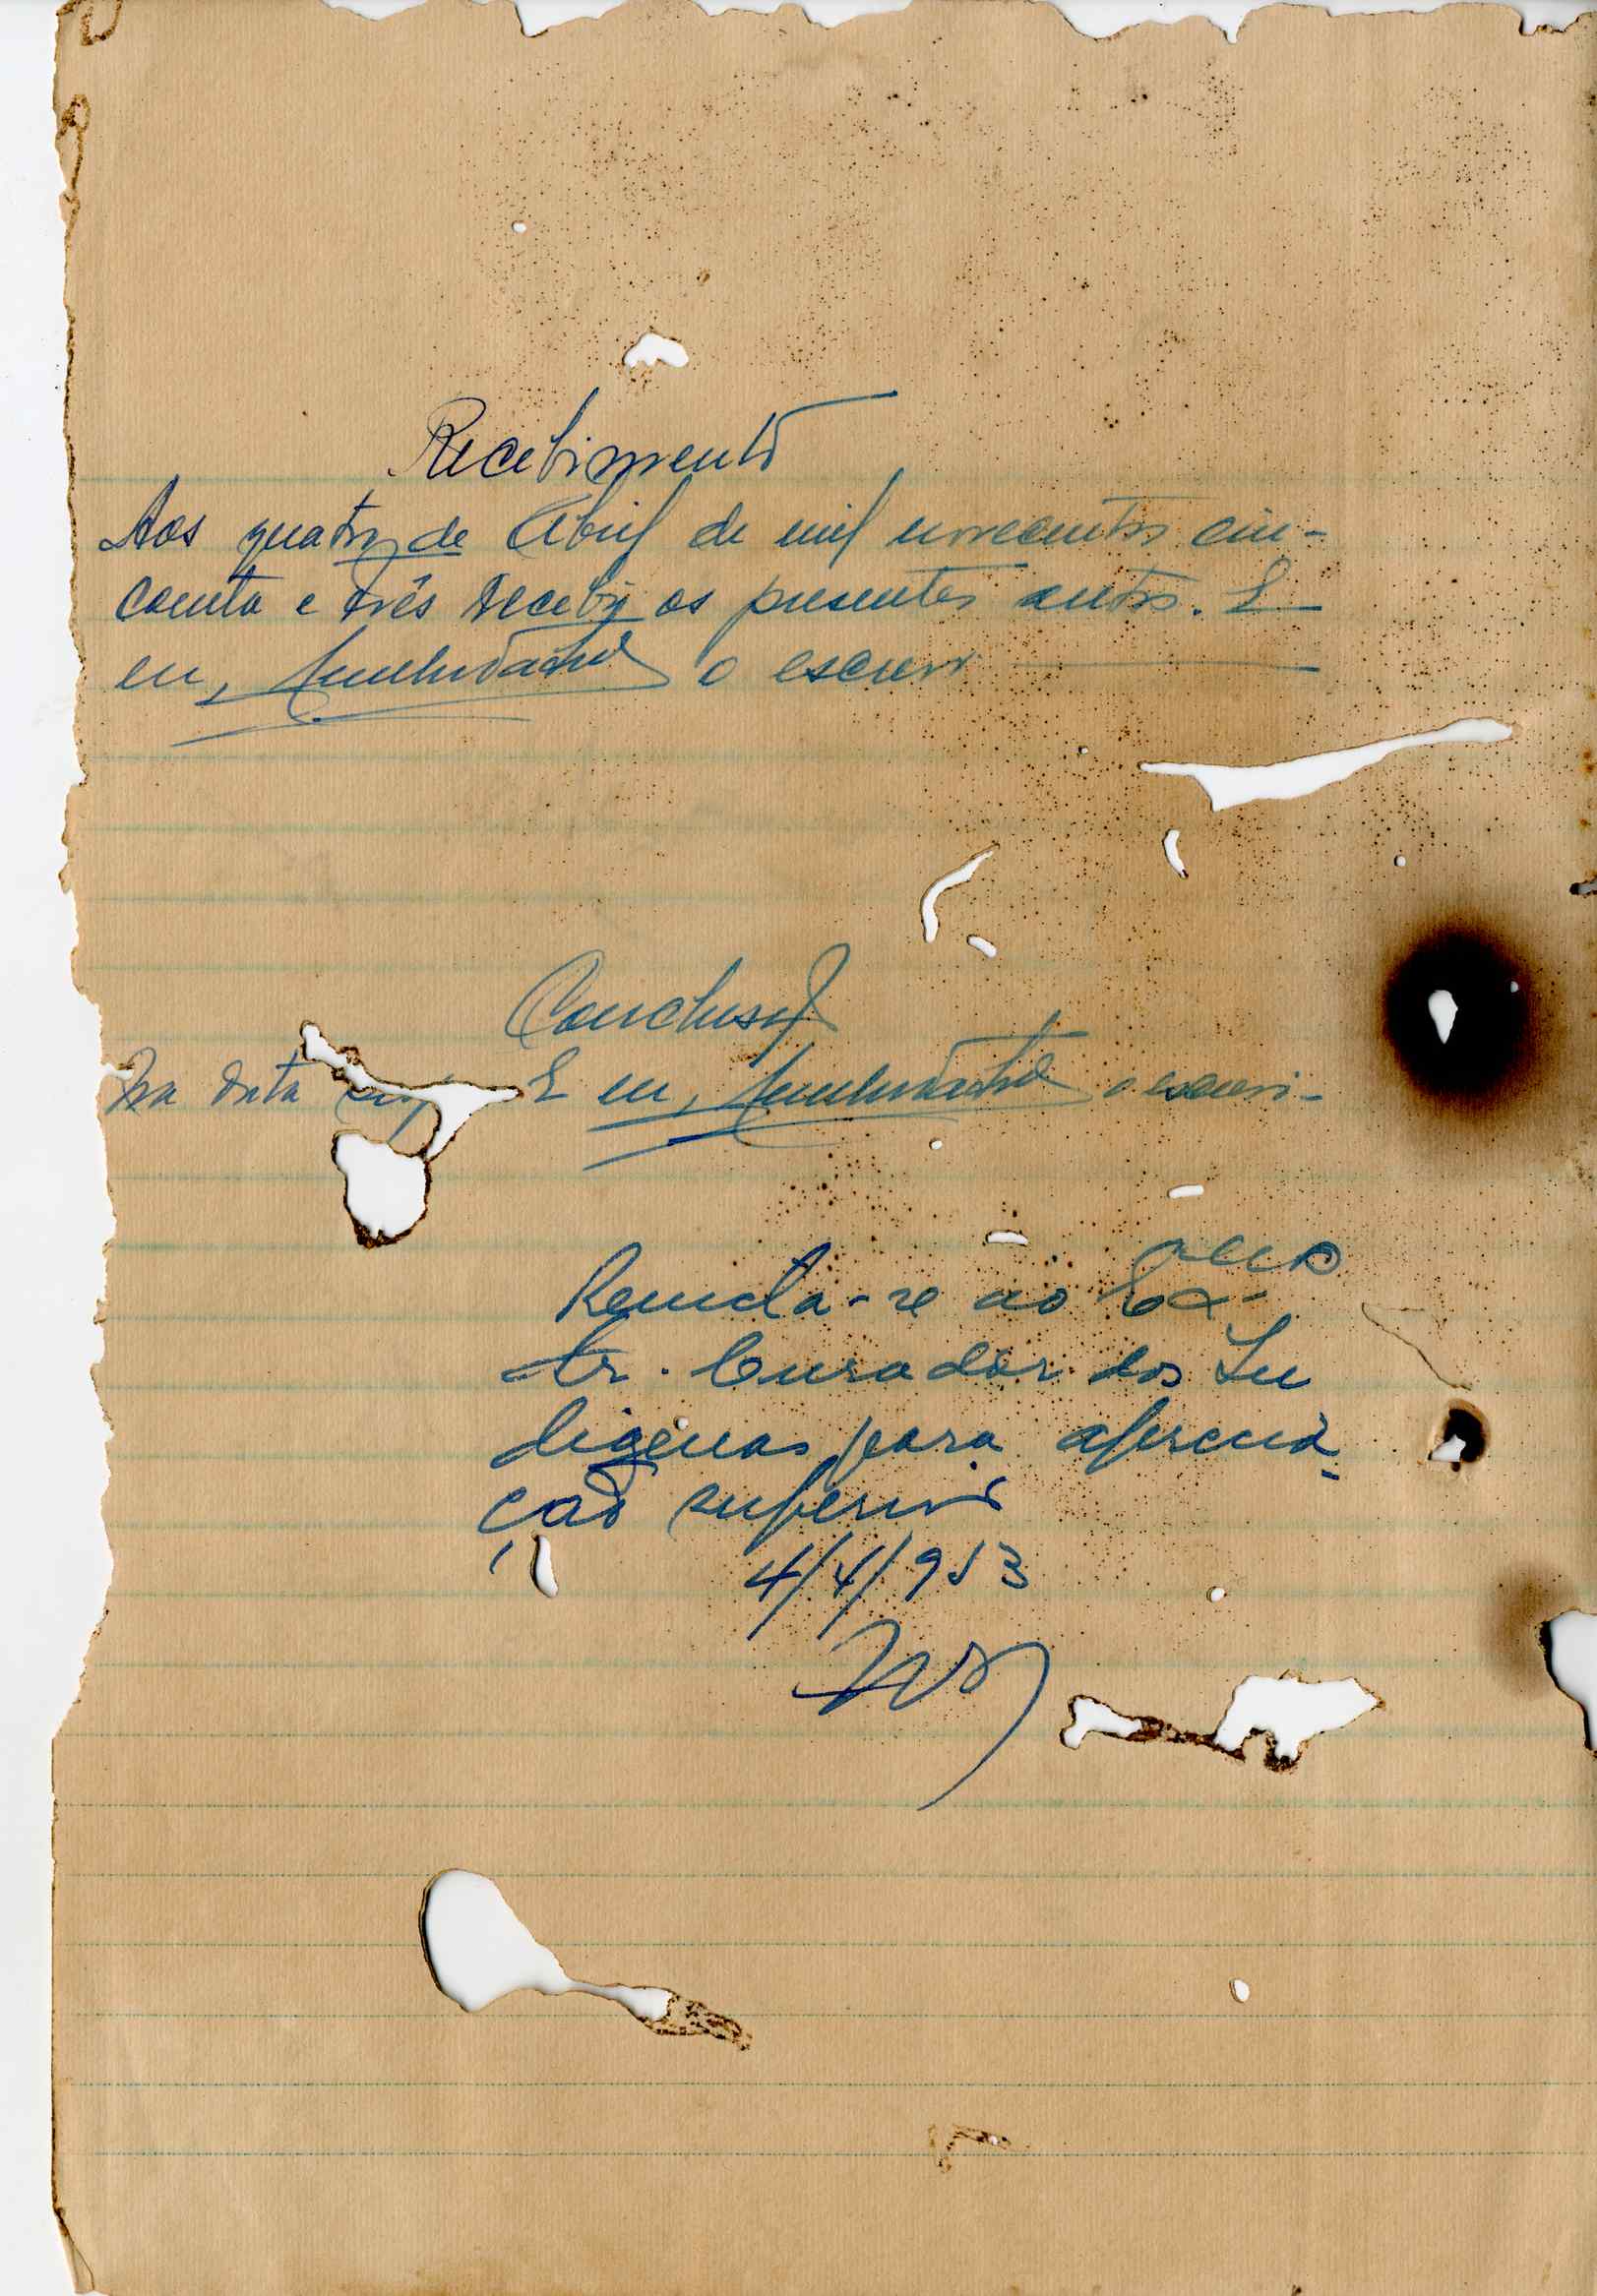 Recebimento
Aos quatro de Abril de mil novecentos cin-
coenta e três recebi os presentes autos. E
eu, o escrevi
Conclusão
Na data E eu, o escrevi-
Remeta-se ao Exmo
Sr. Curador dos In
digenas para aprecia
ção superior
4/4/953